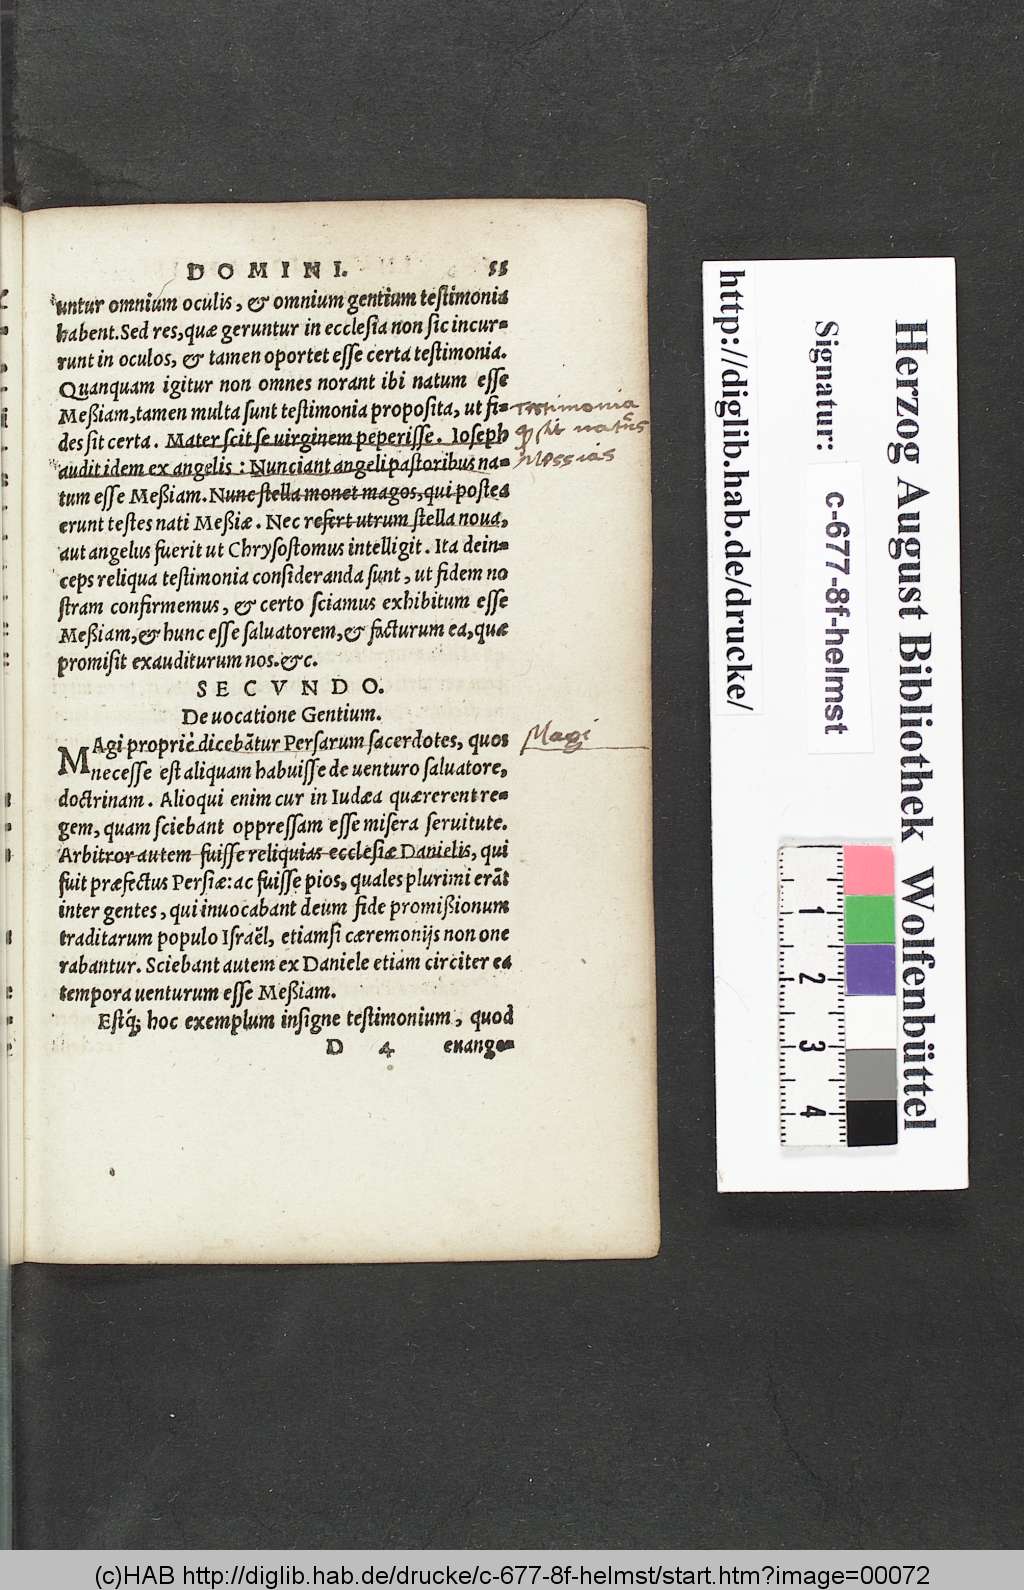 DOMINI. 55
untur omnium oculis, & omnium gentium testimonia
habent. Sed res, quæ geruntur in ecclesia non sic incur-
runt in oculos, & tamen oportet esse certa testimonia.
Quanquam igitur non omnes norant ibi natum esse
Meßiam, tamen multa sunt testimonia proposita, ut fi-
des sit certa. Mater scit se uirginem peperisse. Ioseph
audit idem ex angelis: Nunciant angeli pastoribus na-
tum esse Meßiam. Nunc stella monet magos, qui postea
erunt testes nati Meßiæ. Nec refert utrum stella noua,
aut angelus fuerit ut Chrysostomus intelligit. Ita dein-
ceps reliqua testimonia consideranda sunt, ut fidem no
stram confirmemus, & certo sciamus exhibitum esse
Meßiam, & hunc esse saluatorem, & facturum ea, quæ
promisit exauditurum nos. &c.
Testimonia
sit natus
Messias
SECVNDO.
De uocatione Gentium.
MAgi propriè dicebãtur Persarum sacerdotes, quos
necesse est aliquam habuisse de uenturo saluatore,
doctrinam. Alioqui enim cur in Iudæa quærerent re-
gem, quam sciebant oppressam esse misera seruitute.
Arbitror autem fuisse reliquias ecclesiæ Danielis, qui
fuit præfectus Persiæ: ac fuisse pios, quales plurimi erãt
inter gentes, qui inuocabant deum fide promißionum
traditarum populo Israël, etiamsi cæremonijs non one
rabantur. Sciebant autem ex Daniele etiam circiter ea
tempora uenturum esse Meßiam.
Estq́; hoc exemplum insigne testimonium, quod
D 4 euange-
Magi
http://diglib.hab.de/drucke/
Signatur: c-677-8f-helmst
Herzog August Bibliothek Wolfenbüttel
1
2
3
4
(c)HAB http://diglib.hab.de/drucke/c-677-8f-helmst/start.htm?image=00072